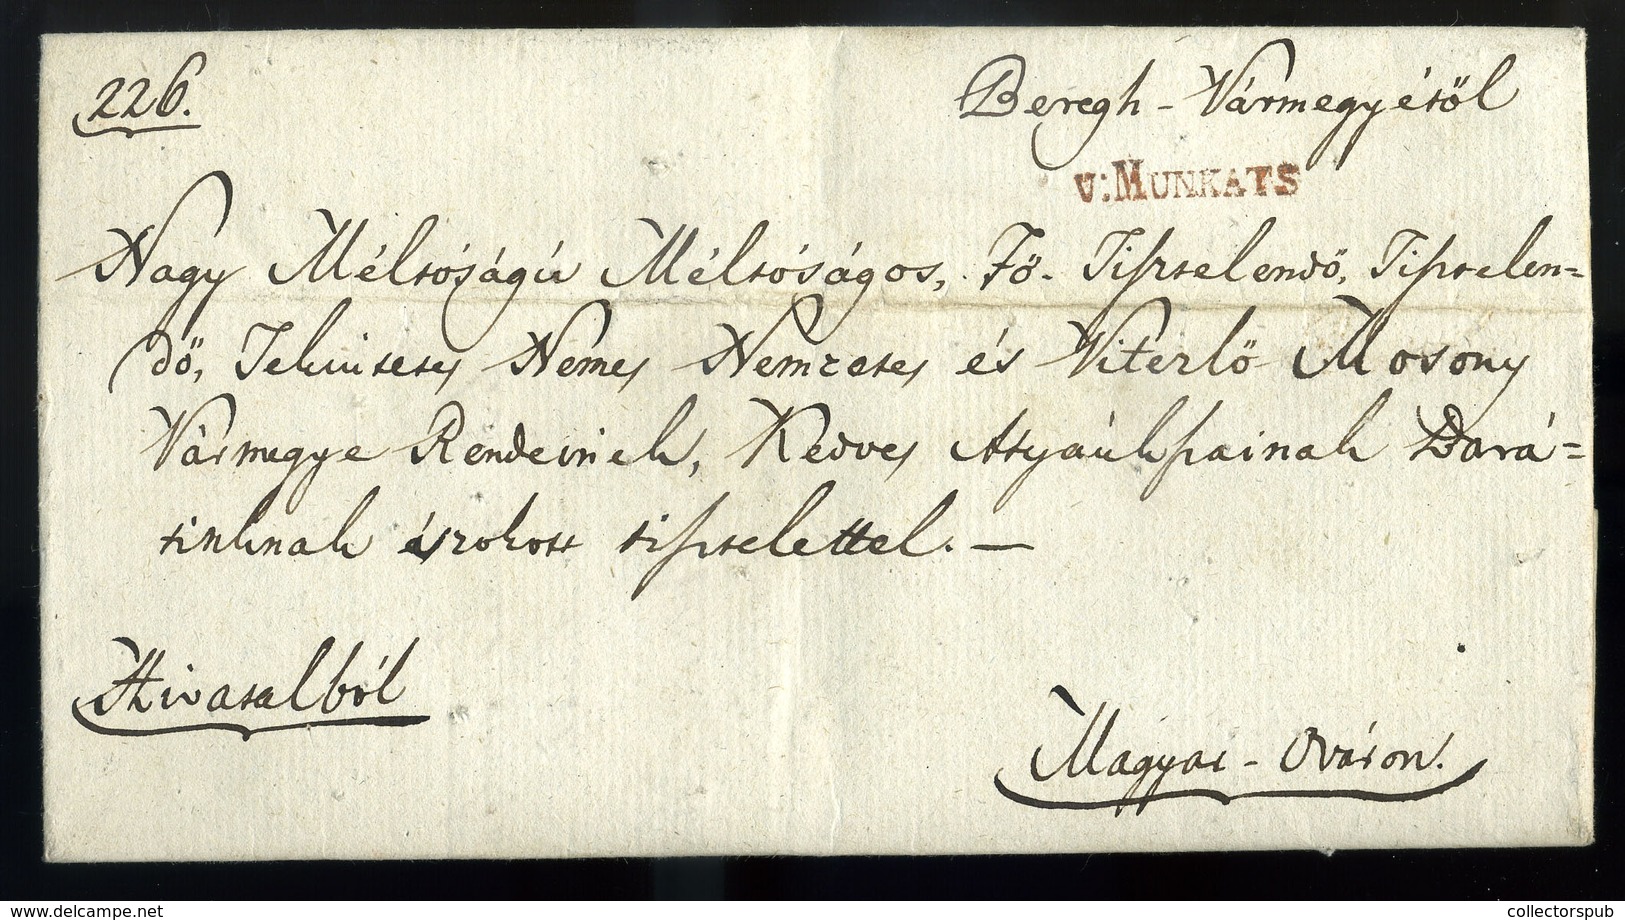 226.
Beregh - Vármegyétől
V: MUNKATS
Nagy Méltóságú Méltóságos, Fő. Tisztelendő, Tisztelen=
dő, Tekintetes Nemes Nemzetes és Vitézlő Mosony
Vármegye Rendeinek, Kedves Attyánkfiainak Bará=
tinknak szokott tisztelettel. —
Hivatalból
Magyar - Óváron.
collectorspub